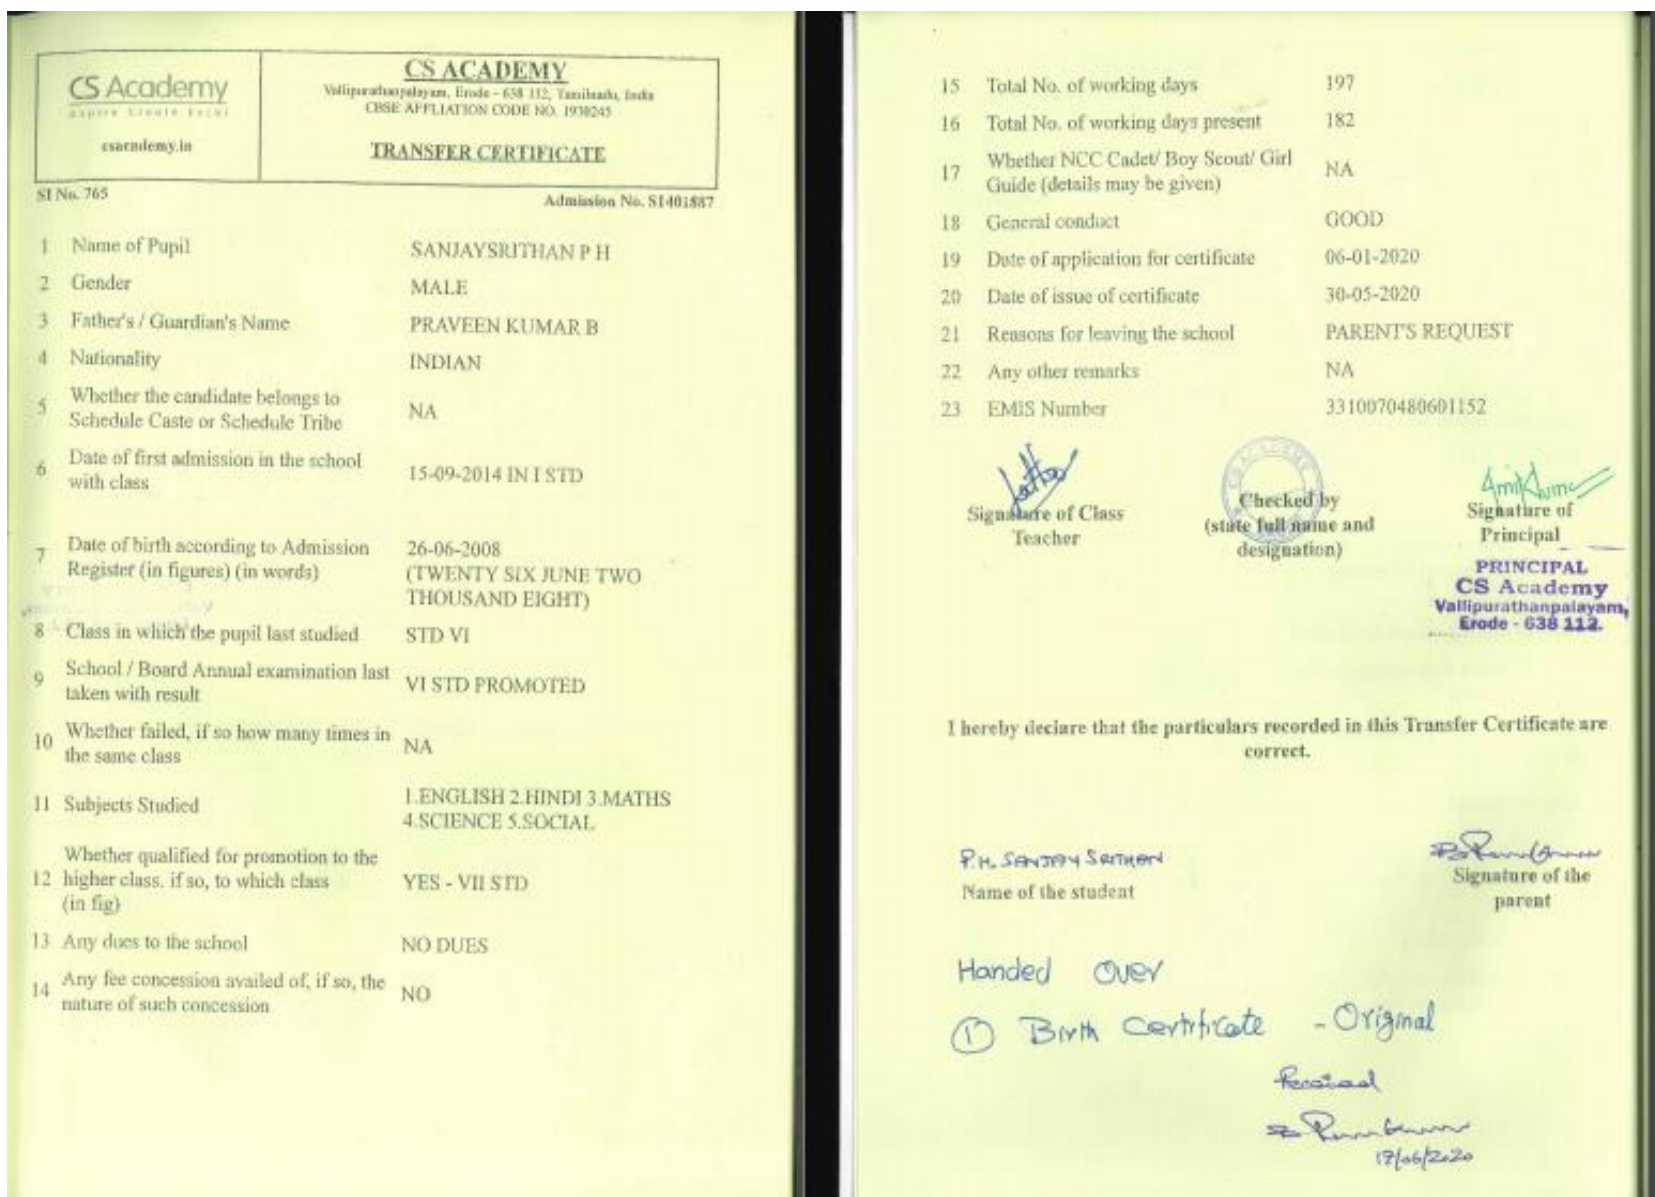 CS Academy
Aspire Create Excel
csacademy.in
CS ACADEMY
Vallipurathanpalayam, Erode - 638 112, Tamilnadu, India
CBSE AFFLIATION CODE NO. 1930245
TRANSFER CERTIFICATE
SI No. 765
Admission No. S1401887
1 Name of Pupil SANJAYSRITHAN P H
2 Gender MALE
3 Father's / Guardian's Name PRAVEEN KUMAR B
4 Nationality INDIAN
5 Whether the candidate belongs to
Schedule Caste or Schedule Tribe NA
6 Date of first admission in the school
with class 15-09-2014 IN I STD
7 Date of birth according to Admission 26-06-2008
Register (in figures) (in words) (TWENTY SIX JUNE TWO
THOUSAND EIGHT)
8 Class in which the pupil last studied STD VI
9 School / Board Annual examination last
taken with result VI STD PROMOTED
10 Whether failed, if so how many times in
the same class NA
11 Subjects Studied 1.ENGLISH 2.HINDI 3.MATHS
4.SCIENCE 5.SOCIAL
Whether qualified for promotion to the
12 higher class. if so, to which class YES - VII STD
(in fig)
13 Any dues to the school NO DUES
14 Any fee concession availed of, if so, the
nature of such concession NO
15 Total No. of working days 197
16 Total No. of working days present 182
17 Whether NCC Cadet/ Boy Scout/ Girl
Guide (details may be given) NA
18 General conduct GOOD
19 Date of application for certificate 06-01-2020
20 Date of issue of certificate 30-05-2020
21 Reasons for leaving the school PARENT'S REQUEST
22 Any other remarks NA
23 EMIS Number 3310070480601152
CS ACADEMY
Signature of Class
Teacher
Checked by
(state full name and
designation)
Signature of
Principal
PRINCIPAL
CS Academy
Vallipurathanpalayam,
Erode - 638 112.
I hereby declare that the particulars recorded in this Transfer Certificate are
correct.
P.H. SANJAY SRITHAN
Name of the student
Signature of the
parent
Handed Over
① Birth Certificate - Original
Received
17/06/2020